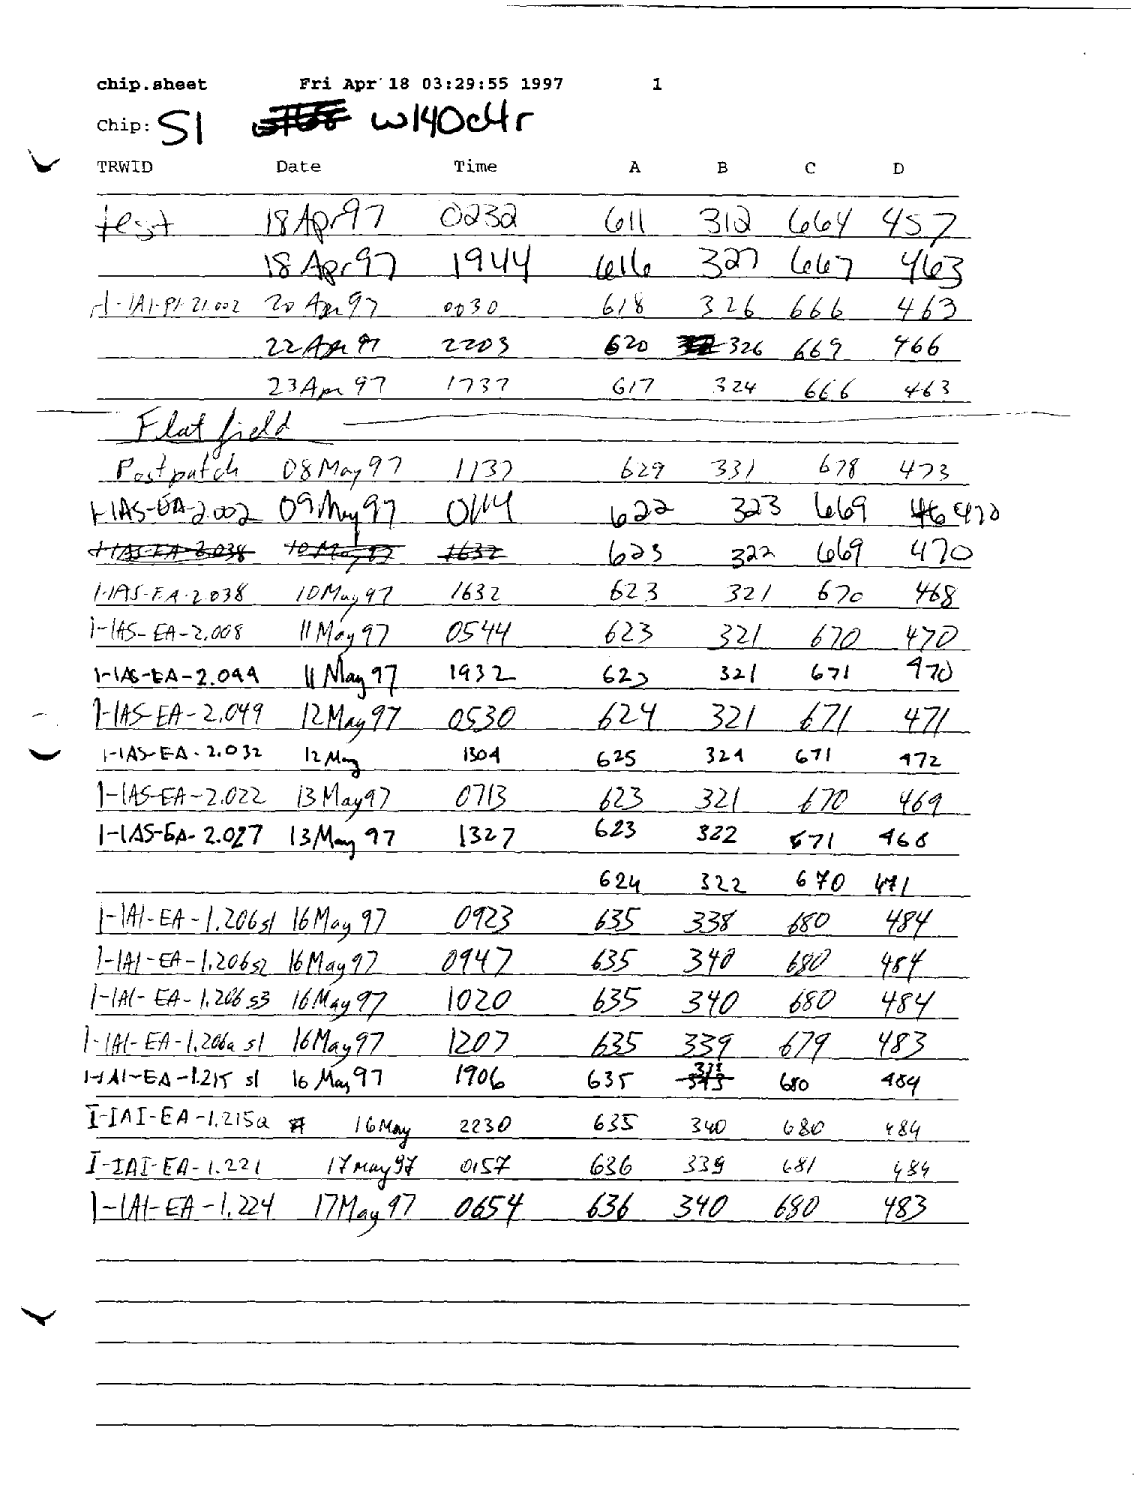 chip.sheet Fri Apr 18 03:29:55 1997 1
Chip: S1 w140c4r
TRWID Date Time A B C D
test 18Apr97 0232 611 312 664 457
18Apr97 1944 616 327 667 463
H-IAI-PI-21.002 20 Apr 97 0030 618 326 666 463
22Apr 97 2203 620 326 669 466
23Apr 97 1737 617 324 666 463
Flat field
Postpatch 08May97 1137 629 331 678 473
H-IAS-EA-2.002 09May97 0114 622 323 669 470
H-IAS-EA-2.038 10May97 1632 623 322 669 470
1-IAS-EA-2.038 10May97 1632 623 321 670 468
1-IAS-EA-2.008 11May97 0544 623 321 670 470
1-IAS-EA-2.044 11May97 1932 623 321 671 470
1-IAS-EA-2.049 12May97 0530 624 321 671 471
1-IAS-EA-2.032 12May 1304 625 324 671 472
1-IAS-EA-2.022 13May97 0713 623 321 670 469
1-IAS-EA-2.027 13May97 1327 623 322 671 468
624 322 670 471
1-IAI-EA-1.206s1 16May97 0923 635 338 680 484
1-IAI-EA-1.206s2 16May97 0947 635 340 680 484
1-IAI-EA-1.206s3 16May97 1020 635 340 680 484
1-IAI-EA-1.206a s1 16May97 1207 635 339 679 483
1-IAI-EA-1.215 s1 16 May 97 1906 635 680 484
I-IAI-EA-1.215a 16May 2230 635 340 680 484
I-IAI-EA-1.221 17May97 0157 636 339 681 484
1-IAI-EA-1.224 17May97 0654 636 340 680 483